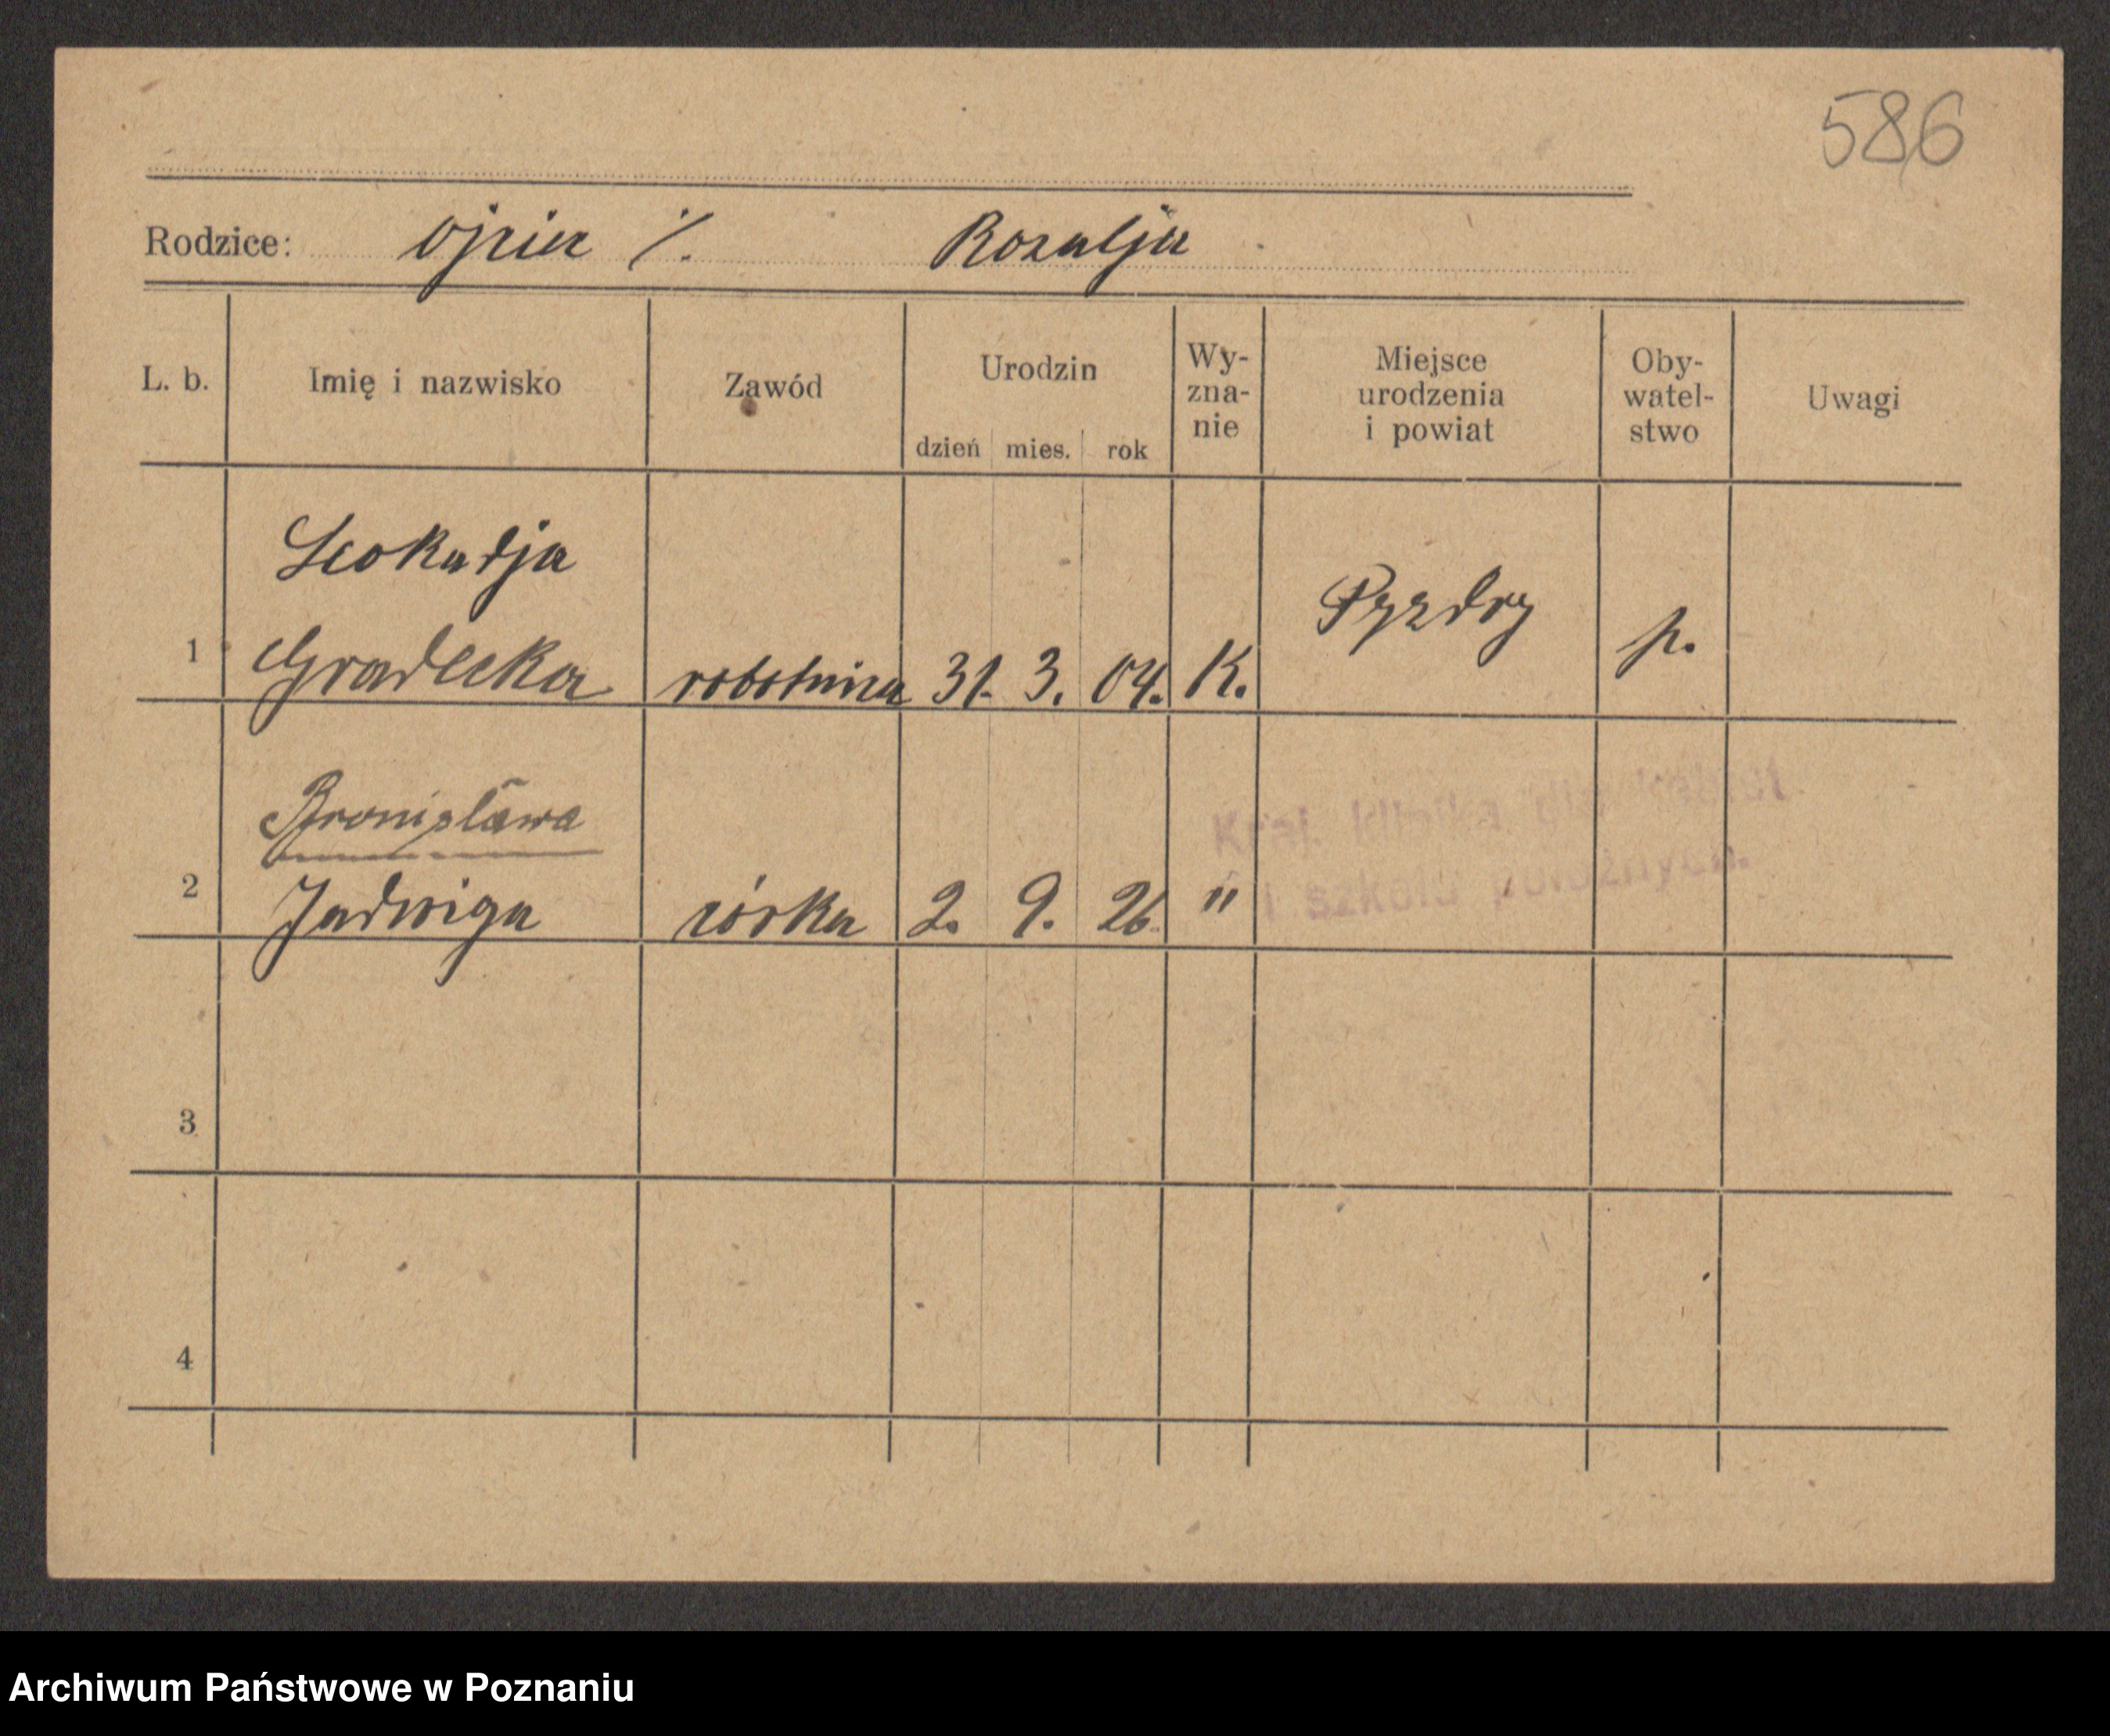 586
Rodzice: Ojciec ·/. Rozalja
L. b. Imię i nazwisko Zawód Urodzin dzień mies. rok Wy-zna-nie Miejsce urodzenia i powiat Oby-watel-stwo Uwagi
Leokadja
1 Gradecka robotnica 31. 3. 04. K. Pyzdry p.
Bronisława
2 Jadwiga córka 2. 9. 26. "
Kraj. klinika dla kobiet
i szkoła położnych.
3
4
Archiwum Państwowe w Poznaniu